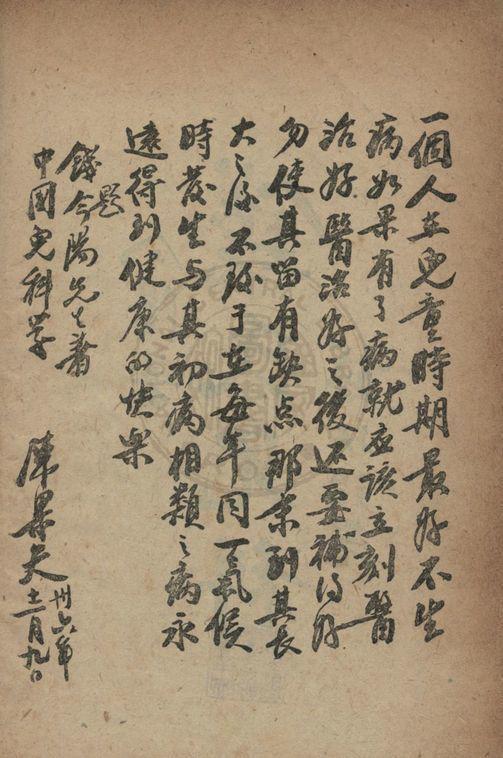 一個人在兒童時期最好不生
病如果有了病就应该立刻醫
治好醫治好之後还要補得好
勿使其留有缺点那末到其長
大之後不致于在每年同一氣候
時發生与其初病相類之病永
遠得到健康的快樂
題
錢今陽先生著
中国兒科学
陳果夫
卅六年
月九日